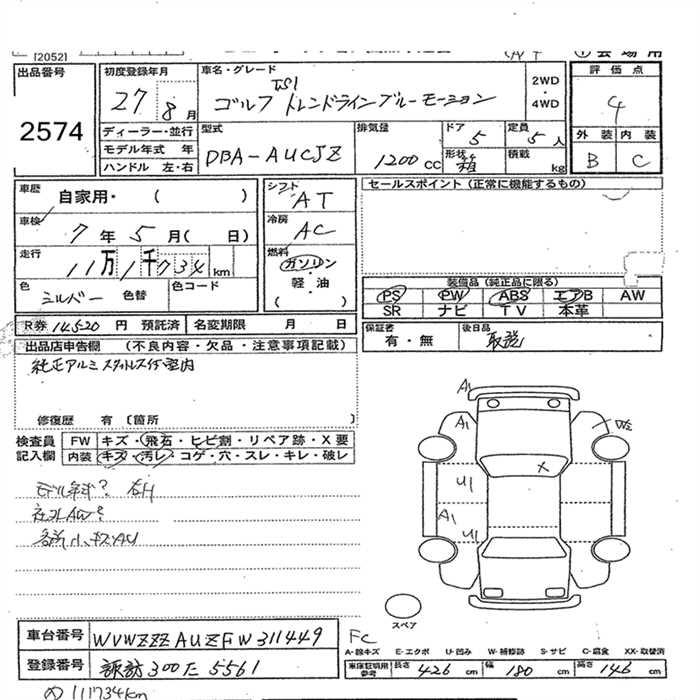 [2052]
出品番号
2574
初度登録年月
27 8月
ディーラー・並行
モデル年式 年
ハンドル 左・右
車名・グレード
TSI
ゴルフ トレンドラインブルーモーション
2WD
・
4WD
型式
DBA-AUCJZ
排気量
1200 cc
ドア
5
定員
5人
形状
箱
積載
kg
評価点
4
外装 内装
B C
車歴
自家用・( )
車検
7年5月( 日)
走行
11万1千734km
色
シルバー
色替
色コード
シフト
AT
冷房
AC
燃料
ガソリン
・
軽・油
( )
セールスポイント(正常に機能するもの)
装備品(純正品に限る)
PS PW ABS エアB AW
SR ナビ TV 本革
R券 14520円 預託済 名変期限 月 日
保証書
有・無
後日品
取説
出品店申告欄 (不良内容・欠品・注意事項記載)
純正アルミスタットレス付室内
修復歴 有〔箇所 〕
検査員
記入欄
FW キズ・飛石・ヒビ割・リペア跡・X要
内装 キズ・汚レ・コゲ・穴・スレ・キレ・破レ
モデル年式? 右H
社外AW?
各所小キズAU
A1
A1
W2
X
U1
A1
U1
スペア
FC
A-線キズ E-エクボ U-凹み W-補修跡 S-サビ C-腐食 XX-取替済
車台番号 WVWZZZAUZFW311449
登録番号 諏訪300た5561
車庫証明用
参考
長さ 426 cm 幅 180 cm 高さ 146 cm
111734km